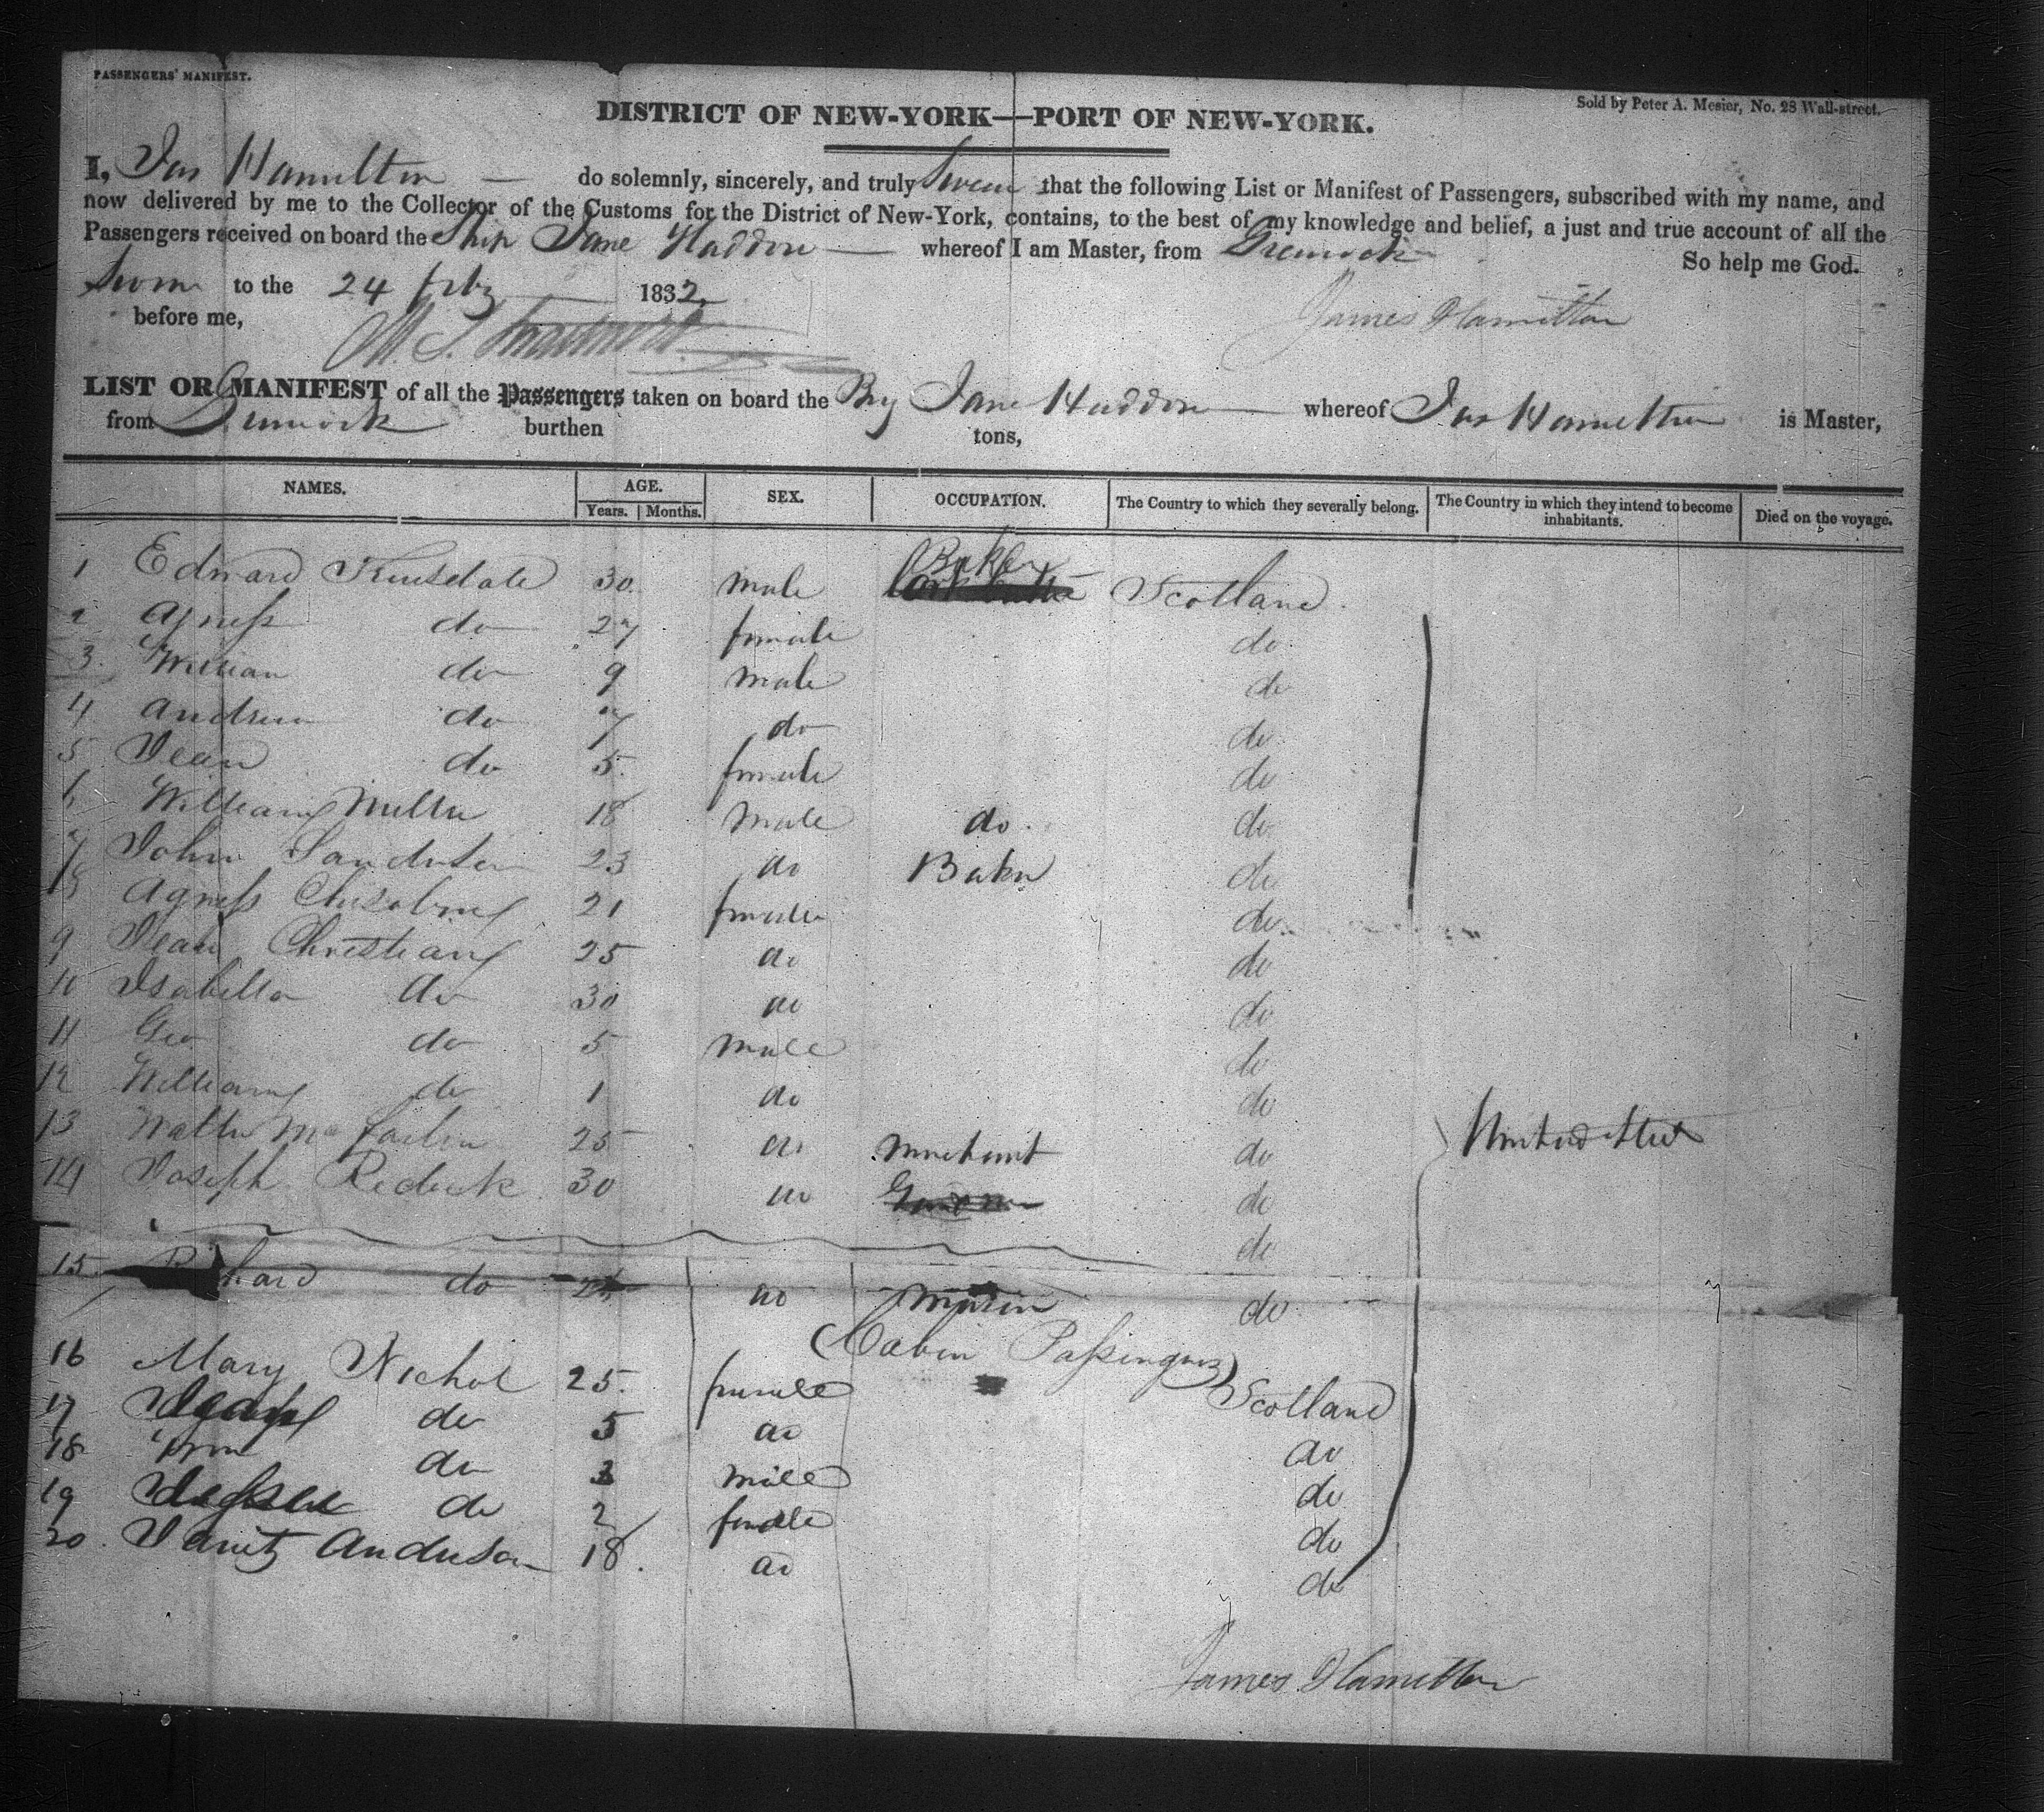 PASSENGERS' MANIFEST.
Sold by Peter A. Mesier, No. 28 Wall-street.
DISTRICT OF NEW-YORK—PORT OF NEW-YORK.
I, Jas Hamilton — do solemnly, sincerely, and truly Swear that the following List or Manifest of Passengers, subscribed with my name, and
now delivered by me to the Collector of the Customs for the District of New-York, contains, to the best of my knowledge and belief, a just and true account of all the
Passengers received on board the Ship Jane Haddon — whereof I am Master, from Greenock
So help me God.
Sworn to the 24 feby 1832
James Hamilton
before me,
LIST OR MANIFEST of all the Passengers taken on board the Brig Jane Haddon — whereof Jas Hamilton is Master,
from Greenock burthen tons,
NAMES. AGE. SEX. OCCUPATION. The Country to which they severally belong. The Country in which they intend to become inhabitants. Died on the voyage.
Years. Months.
Baker
1 Edward 30 male Scotland
2 Agness do 27 female do
3 William do 9 male do
4 Andrew do 7 do do
5 Jean do 5 female do
6 William Miller 18 male do do
7 John Sanderson 23 do Baker do
8 Agness 21 female do
9 Jean Christian 25 do do
10 Isabella do 30 do do
11 Geo do 5 male do
12 William do 1 do do
13 Walter 25 do Merchant do
United States
14 Joseph Redick 30 do do
do
15 Richard do do Mason do
(Cabin Passengers)
16 Mary Nichol 25 female Scotland
17 do 5 do do
18 Wm do 3 male do
19 do 2 female do
20 Janet Anderson 18 do do
James Hamilton